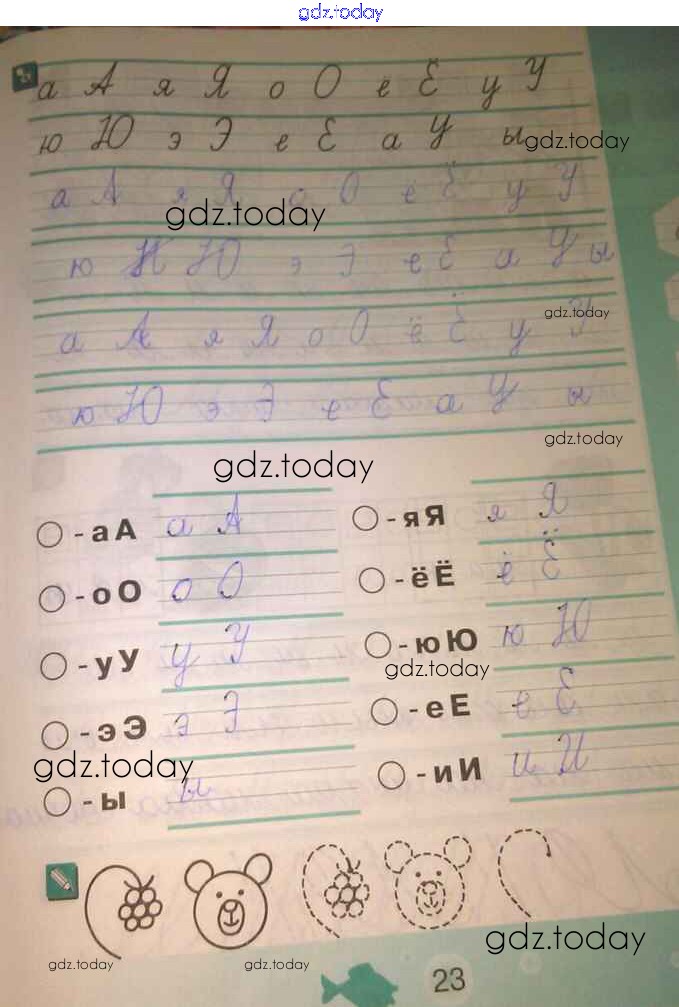 gdz.today
а А я Я о О ё Ё у У
ю Ю э Э е Е а У ы
gdz.today
а А я Я о О ё Ё у У
gdz.today
ю И Ю э Э е Е а У ы
gdz.today
а А я Я о О ё Ё у У
ю Ю э Э е Е а У ы
gdz.today
gdz.today
- а А а А
- я Я я Я
- о О о О
- ё Ё ё Ё
- у У у У
- ю Ю ю Ю
gdz.today
- э Э э Э
- е Е е Е
gdz.today
- ы ы
- и И и И
gdz.today
gdz.today
gdz.today
23